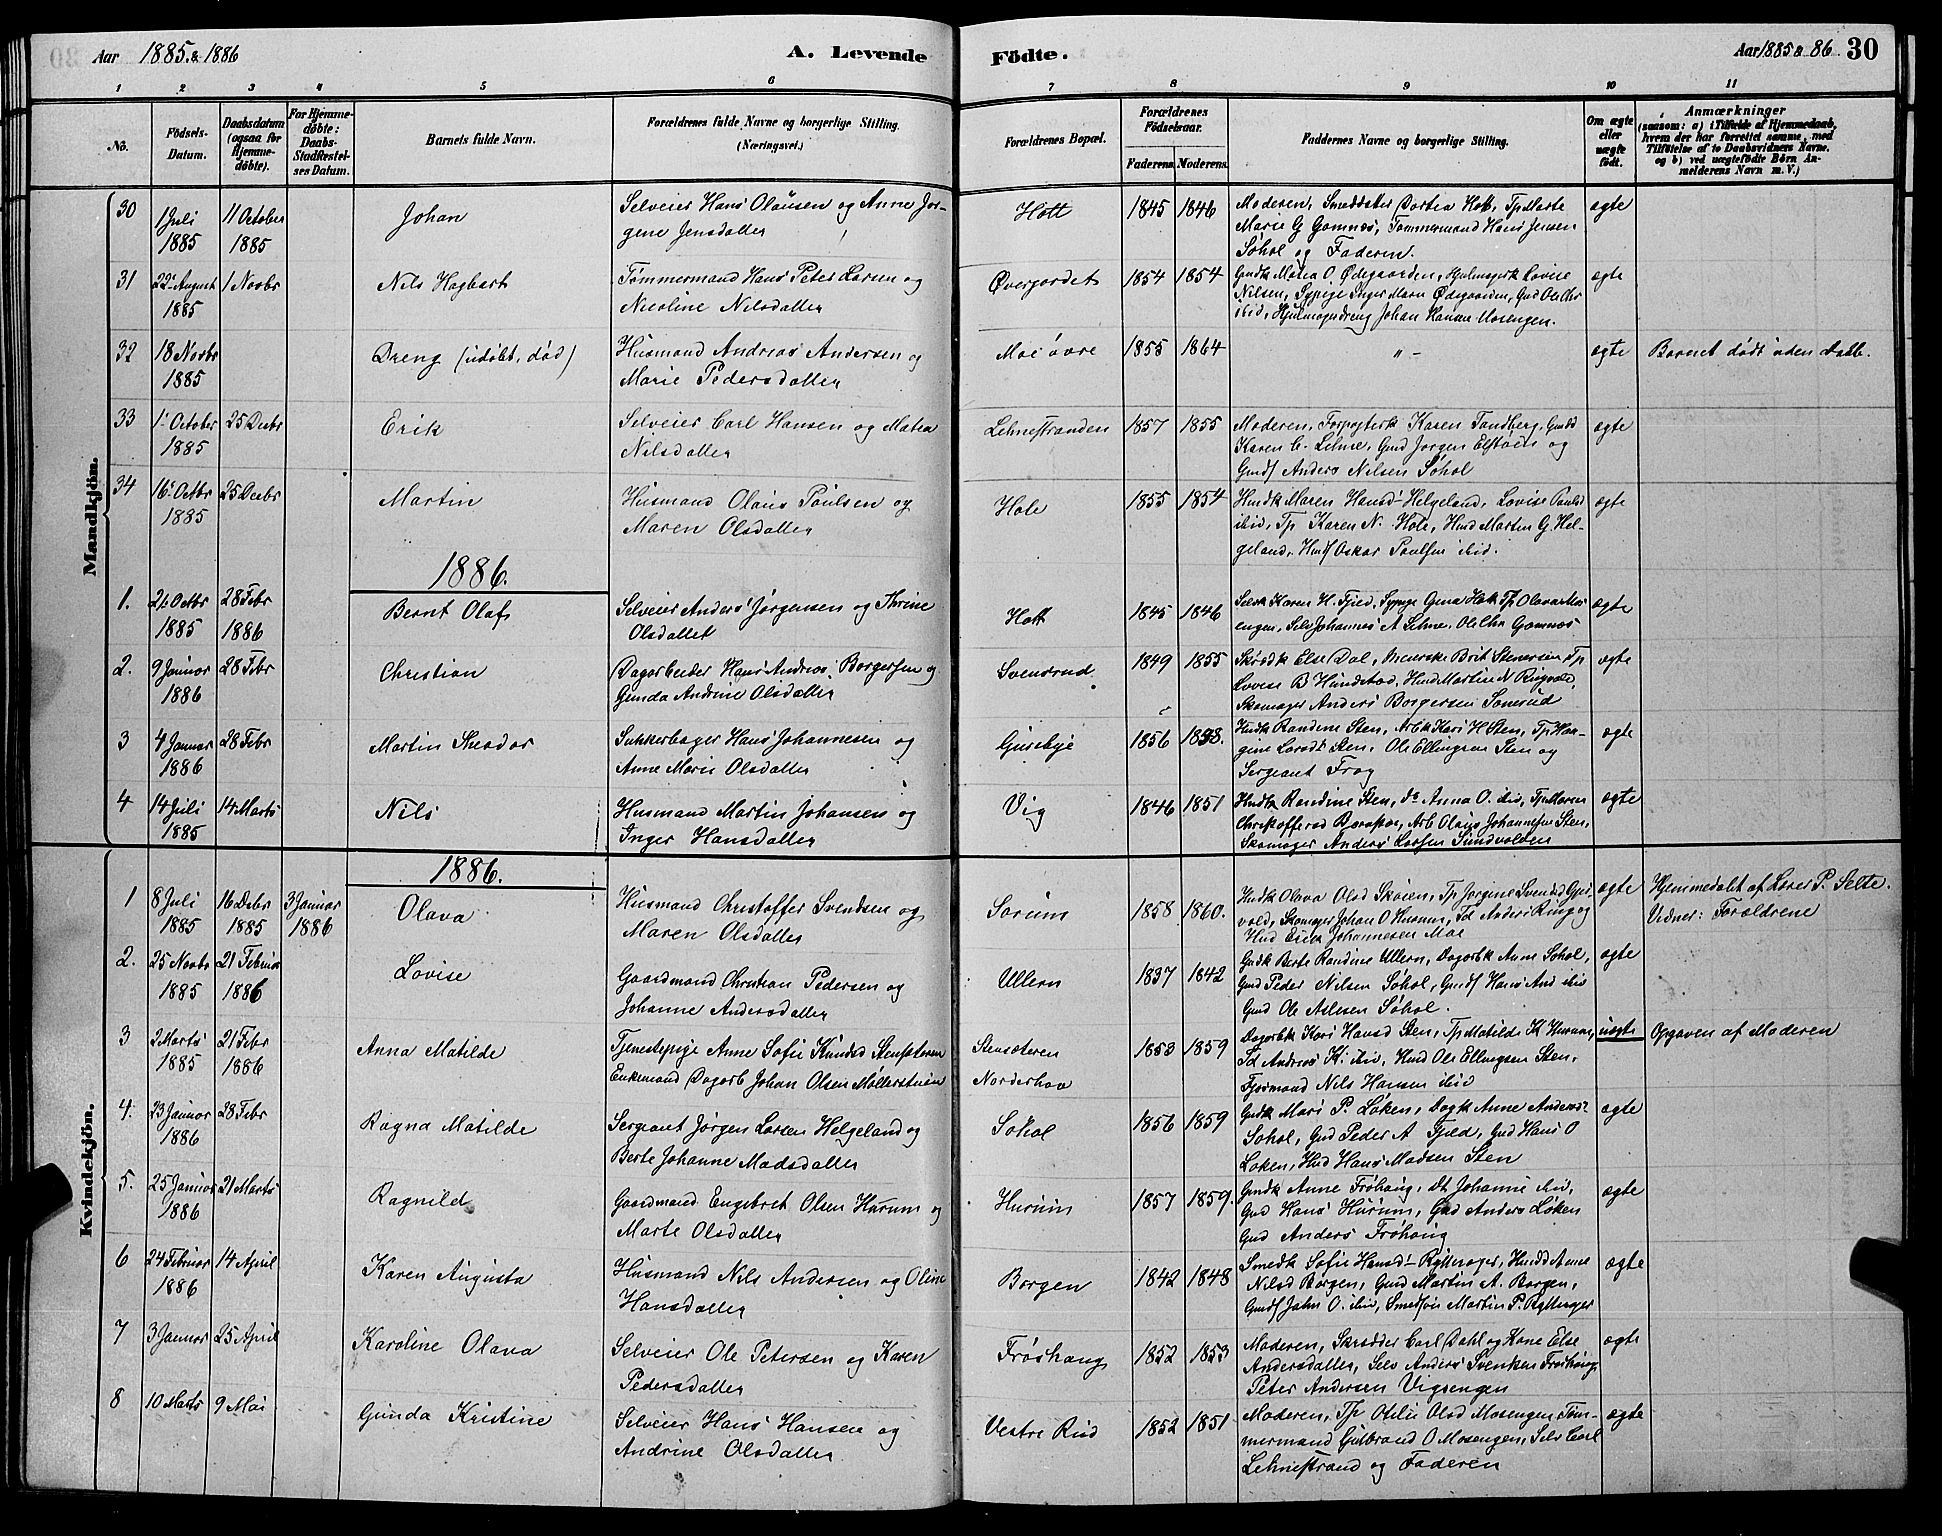 Aar 1885 & 1886 A. Levende Fødte. Aar 1885 & 86 30
1 2 3 4 5 6 7 8 9 10 11
No.
Födsels-
Datum.
Daabsdatum
(ogsaa for
Hjemme-
döbte).
For Hjemme-
döbte:
Daabs-
Stadfæstel-
ses Datum.
Barnets fulde Navn.
Forældrenes fulde Navne og borgerlige Stilling.
(Næringsvei.)
Forældrenes Bopæl.
Forældrenes
Födselsaar.
Faderens. Moderens.
Faddernes Navne og borgerlige Stilling.
Om ægte
eller
uægte
födt.
Anmærkninger
(saasom: a) i Tilfælde af Hjemmedaab,
hvem der har forrettet samme, med
Tilföielse af to Daabsvidners Navne,
og b) ved uægtefödte Börn An-
melderens Navn m. V.)
Mandkjön.
30 1 Juli 1885 11 October 1885 Johan Selveier Hans Olausen og Anne Jør-
gine Jensdatter Hott 1845 1846 Moderen, Tp Marte
Marie G Gomnæs, Tømmermand Hans Jensen
Søhol og Faderen. ægte
31 22 August 1885 1 Novbr Nils Hagbart Tømmermand Hans Peter Larsen og
Nicoline Nilsdatter Øvergordet 1854 1854 Gmdk Matea O. Ødegaarden, Lovise
Nilsen, Sypige Inger Marie Ødegaarden, Gmd Ole Chr
ibid, Johan Hansen Mosengen. ægte
32 18 Novbr 1885 Dreng (udøbt, død) Husmand Andreas Andersen og
Marie Pedersdatter Moe øvre 1855 1864 " - ægte Barnet dødt uden Daab.
33 1 October 1885 25 Decbr Erik Selveier Carl Hansen og Matea
Nilsdatter Lehnestranden 1857 1855 Moderen, Forpagterk Karen Tandberg, Gmdd
Karen C. Lehne, Gmd Jørgen og
Gmds Anders Nilsen Søhol ægte
34 16 Octbr 1885 25 Decbr Martin Husmand Olaus Paulsen og
Maren Olsdatter Hole 1855 1854 Hmdk Maren Hansd Helgeland, Lovise Paulsd
ibid, Tp Karen N. Hole, Hmd Martin G. Hel-
geland, Hmds Oskar Paulsen ibid. ægte
1886.
1. 21 Octbr 1885 28 Febr 1886 Bernt Olaf Selveier Anders Jørgensen og Thrine
Olsdatter Hott 1845 1846 Selvk Karen H. Fjeld, Sypige Gina Tp Olava Mos
engen, Selv Johannes A Lehne, Ole Chr Gomnæs ægte
2. 9 Januar 1886 28 Febr Christian Dagarbeider Hans Andreas Borgersen og
Gunda Andrine Olsdatter Svensrud 1849 1855 Skrædk Else Dal, Brit Stenersen, Tp
Lovise B Hundstad, Hmd Martin N
Skomager Anders Borgersen Sonerud ægte
3 4 Januar 1886 28 Febr Martin Theodor Sukkerbager Hans Johannesen og
Anne Marie Olsdatter Gusebye 1856 1858. Hmdk Randine Sten, Arbk Kari H Sten, Tp
Larsdt Sten, Ole Ellingsen Sten og
Sergeant Frog ægte
4 14 Juli 1885 14 Marts Nils Husmand Martin Johansen og
Inger Hansdatter Vig 1846 1851 Hmdk Randine Sten, do Anna O. ibid, Tp Maren
Christoffersd , Arb Olaus Johannesen Sten,
Skomager Anders Larsen Sundvolden ægte
Kvindekjön.
1886.
1 8 Juli 1885 16 Decbr 1885 3 Januar 1886 Olava Husmand Christoffer Svendsen og
Maren Olsdatter Sørum 1858 1860. Hmdk Olava Olsd Skøien, Tp Jørgine Svendsd
, Skomager Johan O Hurum, Td Anders Ring og
Hmd Erik Johannesen Moe ægte Hjemmedøbt af Lærer P. Selte.
Vidner: Forældrene
2. 25 Novbr 1885 21 Februar 1886 Lovise Gaardmand Christian Pedersen og
Johanne Andersdatter Ullern 1837 1842 Gmdk Berte Randine Ullern, Dagarbk Anne Søhol,
Gmd Peder Nilsen Søhol, Gmds Hans And ibid
Gmd Ole Aslesen Søhol. ægte
3 2 Marts 1885 21 Febr 1886 Anna Matilde Tjenestepige Anne Sofie Knudsd Stensæteren
Enkemand Dagarb Johan Olsen Møllerstuen Stensæteren
Norderhov 1853 1859 Dagarbk Kari Hansd Sten, Tp Matilde K Hurum,
Td Andreas K. ibid, Hmd Ole Ellingsen Sten,
Nils Hansen ibid uægte Opgaven af Moderen
4. 23 Januar 1886 28 Febr Ragna Matilde Sergeant Jørgen Larsen Helgeland og
Berte Johanne Madsdatter Søhol 1856 1859 Gmdk Mari P. Løken, Dagk Anne Andersd
Søhol, Gmd Peder A Fjeld, Gmd Hans O
Løken, Hmd Hans Madsen Sten ægte
5. 25 Januar 1886 21 Marts Ragnild Gaardmand Engebret Olsen Hurum og
Marte Olsdatter Hurum 1857 1859. Gmdk Anne Frøhaug, dt Johanne ibid,
Gmd Hans Hurum, Gmd Anders Løken
Gmd Anders Frøhaug ægte
6 24 Februar 1886 14 April Karen Augusta Husmand Nils Andersen og Oline
Hansdatter Borgen 1842 1848 Smedk Sofie Hansd Rytterager, Hmdd Anne
Nilsd Borgen, Gmd Martin A. Borgen,
Gmds John O. ibid, Martin P. Rytterager ægte
7 3 Januar 25 April Karoline Olava Selveier Ole Petersen og Karen
Pedersdatter Frøshaug 1852 1853 Moderen, Skrædder Carl Dahl og Kone Else
Andersdatter, Selv Anders Svenken Frøshaug
Peter Andersen Vigsengen ægte
8 10 Marts 9 Mai Gunda Kristine Selveier Hans Hansen og
Andrine Olsdatter Vestre Rud 1852 1851 Moderen, Tp Otilie Olsd Mosengen, Tøm-
mermand Gulbrand O Mosengen, Selv Carl
Lehnestrand og Faderen ægte